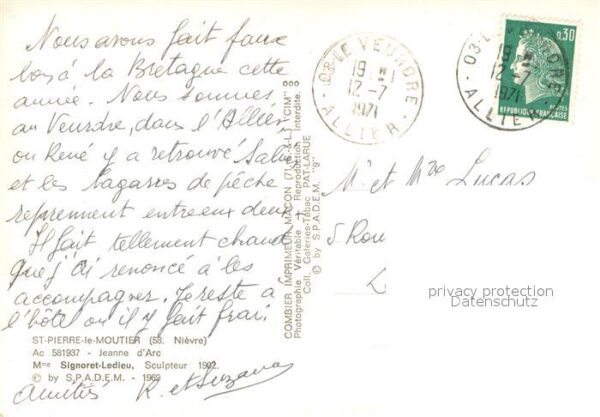 Nous avons fait faux
bon à la Bretagne cette
année. Nous sommes
au Veurdre, dans l'Allier
où René y a retrouvé
et les bagarres de pêche
reprennent entre eux deux
Il fait tellement chaud
que j'ai renoncé à les
accompagner. Je reste à
l'hôtel où il y fait frais.
ST-PIERRE-le-MOUTIER (58. Nièvre)
Ac 581937 - Jeanne d'Arc
Mme Signoret-Ledieu, Sculpteur 1902.
© by S.P.A.D.E.M. - 1969
Amitiés R. et Suzanne
COMBIER IMPRIMEUR MACON (71) (S.-&-L.) "CIM"
Photographie Véritable - Reproduction Interdite.
Coll. Galeries-Tabac PAT-LARUE
© by S.P.A.D.E.M. "9"
03 LE VEURDRE
19 H
12-7
1971
ALLIER
03 LE VEURDRE
19 H
12-7
1971
ALLIER
0,30
POSTES
REPUBLIQUE FRANÇAISE
Mr et Mme Lucas
5 Rou
privacy protection
Datenschutz